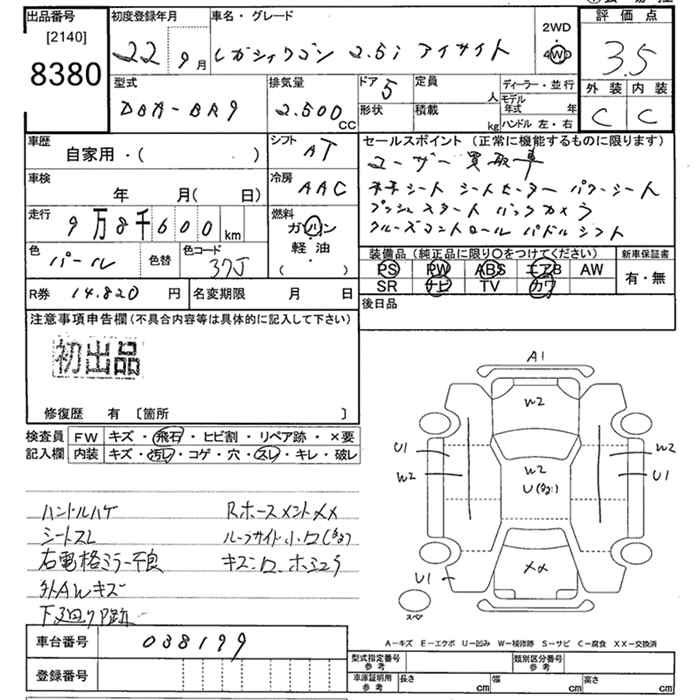 出品番号 初度登録年月 車名・グレード 2WD 評価点
[2140] 22 9月 レガシィワゴン 2.5i アイサイト 4WD 3.5
8380 型式 排気量 ドア 5 定員 人 ディーラー・並行 外装 内装
DBA-BR9 2.500cc 形状 積載 kg モデル年式 年 ハンドル 左・右 C C
車歴 シフト セールスポイント (正常に機能するものに限ります)
自家用・( ) AT ユーザー買取車
車検 冷房 本革シート シートヒーター パワーシート
年 月( 日) AAC プッシュスタート バックカメラ
走行 9万8千600km 燃料 ガソリン クルーズコントロール パドルシフト
色 パール 色替 色コード 37J 軽・油 ( )
装備品 (純正品に限り〇をつけてください) 新車保証書
PS PW ABS エアB AW 有・無
SR ナビ TV カワ
R券 14.820円 名変期限 月 日 後日品
注意事項申告欄(不具合内容等は具体的に記入して下さい)
初出品
修復歴 有 〔箇所 〕
検査員 FW キズ・飛石・ヒビ割・リペア跡・×要
記入欄 内装 キズ・汚レ・コゲ・穴・スレ・キレ・破レ
ハンドルハゲ Rホースメントメメ
シートスレ ルーフサイド小
右電格ミラー不良
外AWキズ
下廻り 跡
A1
W2
U1 W2
W2 W2 U1
U
U1 XX
スペア
A-キズ E-エクボ U-凹み W-補修跡 S-サビ C-腐食 XX-交換済
車台番号 038199
登録番号
型式指定番号参考 類別区分番号参考
車庫証明用参考 長さ cm 幅 cm 高さ cm